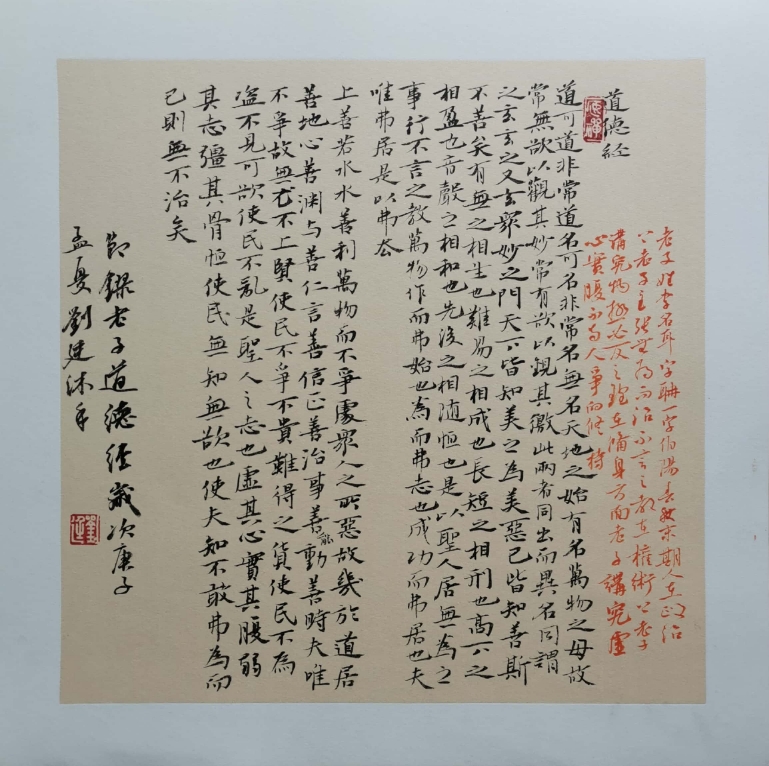 老子姓李名耳字聃一字伯陽春秋末期人在政治
上老子主张無为而治不言之教在權術上老子
講究物極必反之理在脩身方面老子講究虛
心實腹不与人爭的修持
道德經
道可道非常道名可名非常名無名天地之始有名萬物之母故
常無欲以觀其妙常有欲以觀其徼此兩者同出而異名同謂
之玄玄之又玄眾妙之門天下皆知美之為美惡已皆知善斯
不善矣有無之相生也難易之相成也長短之相刑也高下之
相盈也音聲之相和也先後之相随恒也是以聖人居無為之
事行不言之教萬物作而弗始也為而弗志也成功而弗居也夫
唯弗居是以弗去
上善若水水善利萬物而不爭處眾人之所惡故幾於道居
善地心善渊与善仁言善信正善治事善能動善時夫唯
不爭故無尤不上賢使民不爭不貴難得之貨使民不為
盗不見可欲使民不亂是聖人之志也虛其心實其腹弱
其志彊其骨恒使民無知無欲也使夫知不敢弗為而
已則無不治矣
節錄老子道德經歲次庚子
孟夏劉建沐手